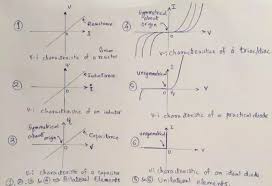 ① V Resistance i
V-i characteristic of a resistor
② ψ Inductance i
V-i characteristic of an inductor
③ Symmetrical about origin q Capacitance V
V-i characteristic of a capacitor
④ Symmetrical about origin I V
V-i characteristic of a
⑤ unsymmetrical I V
V-i characteristic of a practical diode
⑥ unsymmetrical I V
V-i characteristic of an ideal diode
①, ②, ③ & ④ ⇒ Bilateral Elements.
⑤ & ⑥ Unilateral Elements.